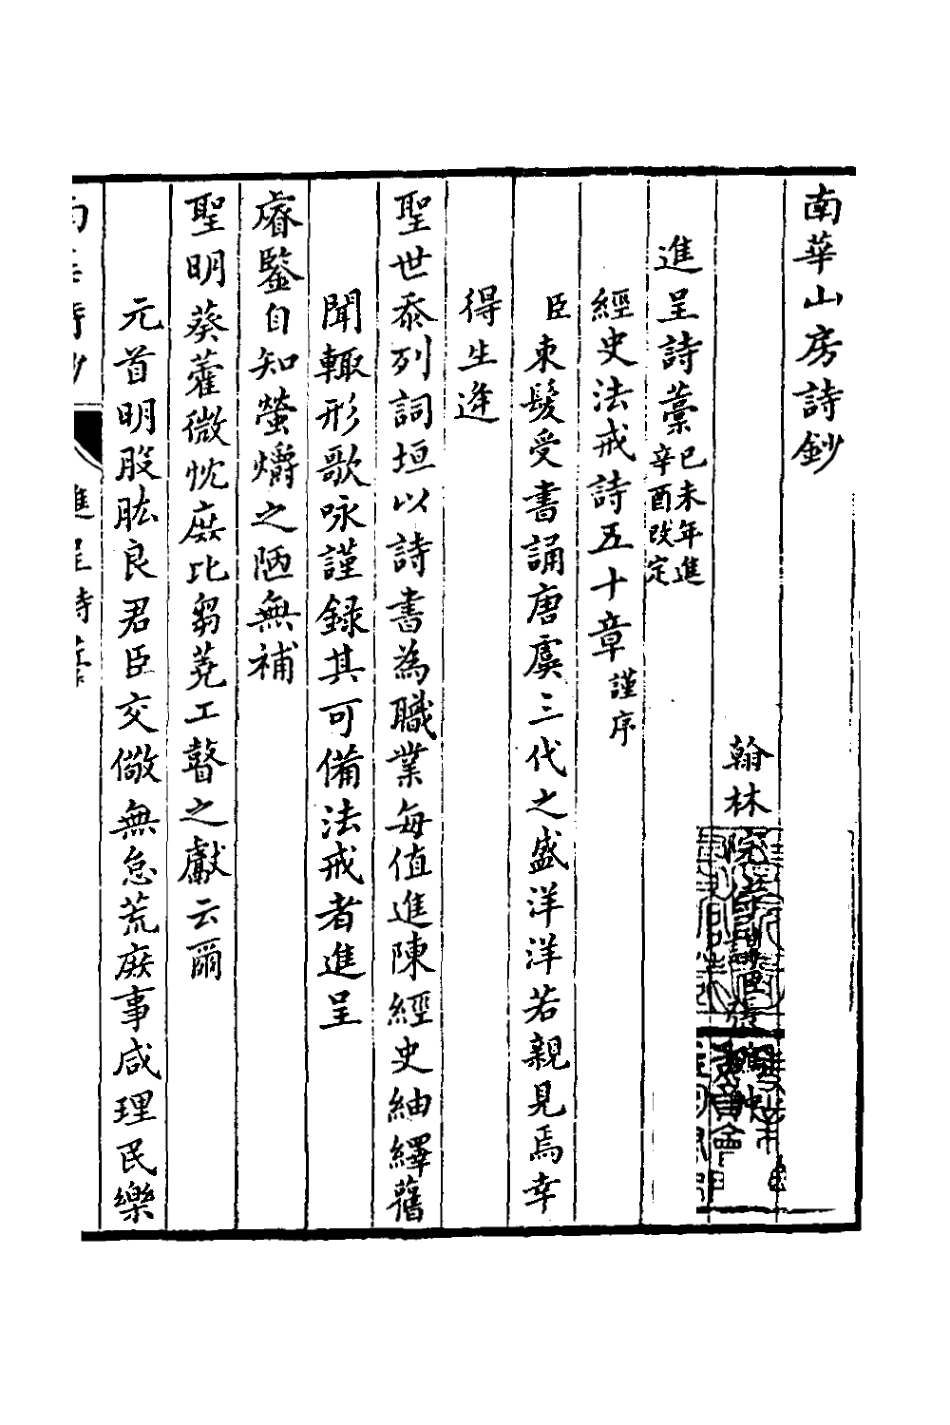 南華山房詩鈔
翰林院侍講臣張鵬翀
進呈詩藁已未年進辛酉改定
經史法戒詩五十章謹序
臣束髮受書誦唐虞三代之盛洋洋若親見焉幸
得生逢
聖世忝列詞垣以詩書為職業每值進陳經史紬繹舊
聞輙形歌咏謹録其可備法戒者進呈
睿鑒自知螢爝之陋無補
聖明葵藿微忱庶比芻蕘工瞽之獻云爾
元首明股肱良君臣交儆無怠荒庶事咸理民樂
進呈詩藁